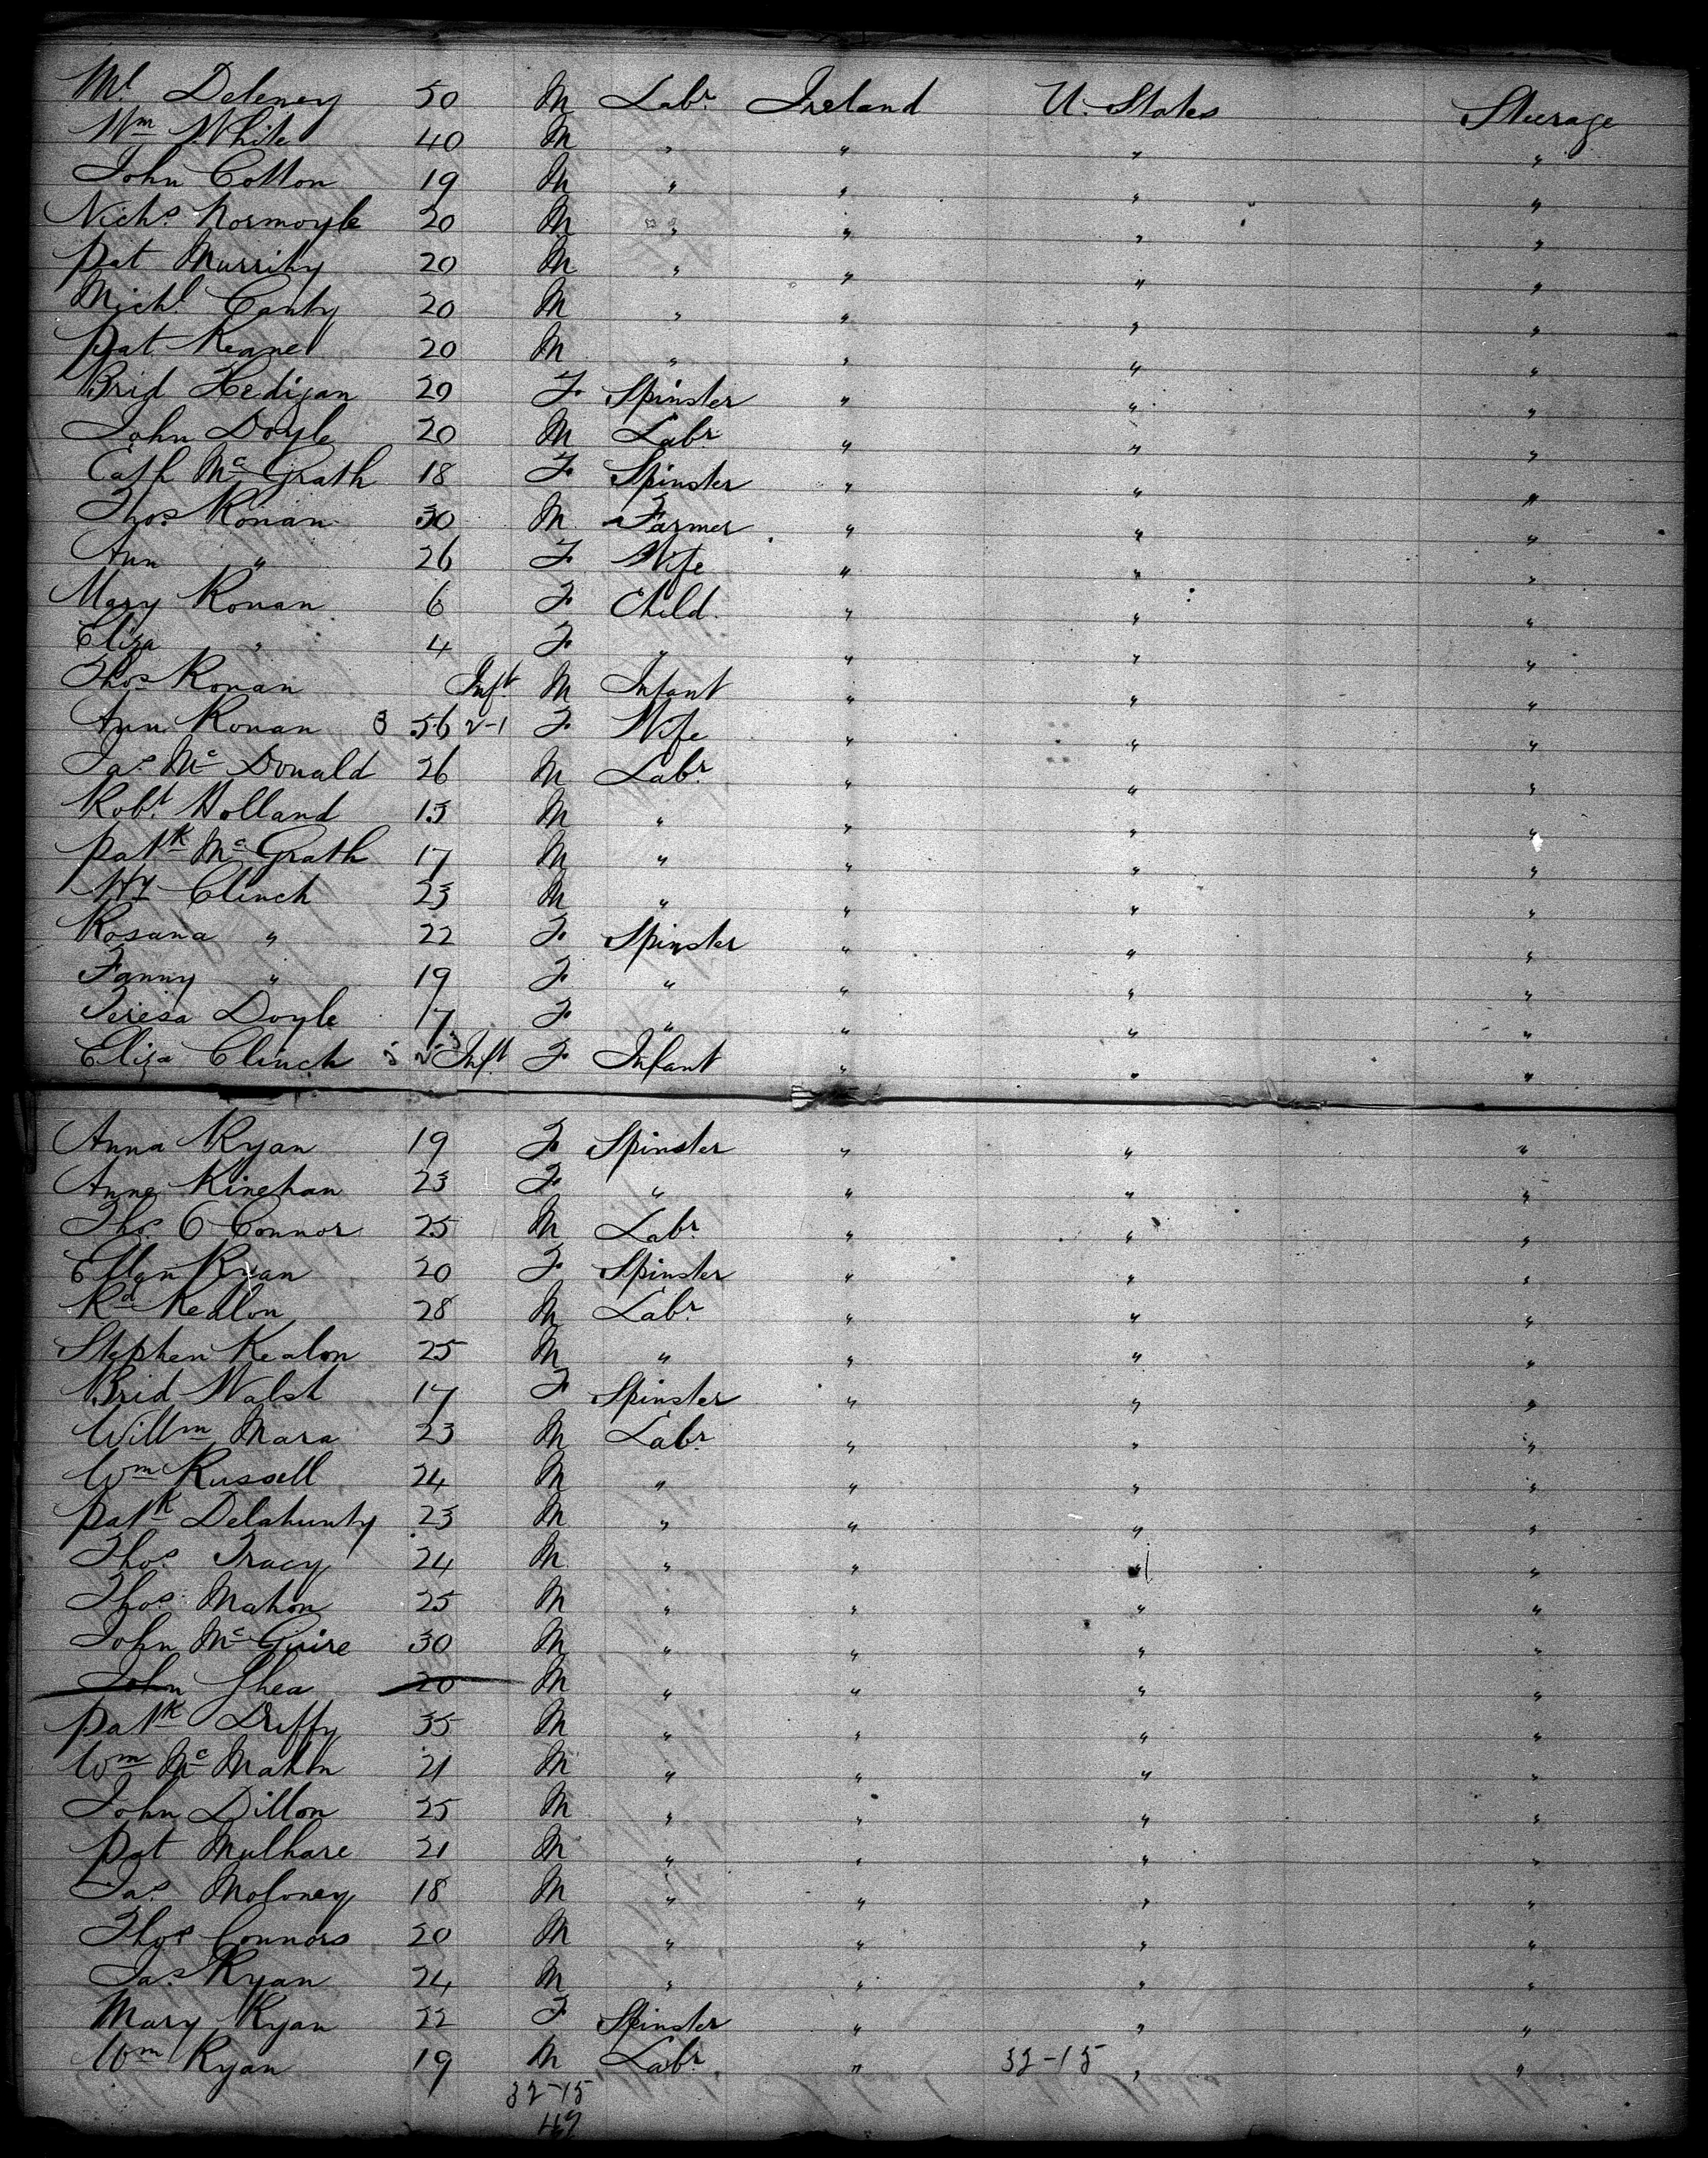 Ml Deleney 50 M Labr Ireland U. States Steerage
Wm White 40 M " " " "
John Cotton 19 M " " " "
Nichs Normoyle 20 M " " " "
Pat Murrihy 20 M " " " "
Michl Canty 20 M " " " "
Pat Keane 20 M " " " "
Brid Hedigan 20 F Spinster " " "
John Doyle 20 M Labr " " "
Cath McGrath 18 F Spinster " " "
Thos Ronan 30 M Farmer " " "
Ann " 26 F Wife " " "
Mary Ronan 6 F Child " " "
Eliza " 4 F " " " "
Thos Ronan Inft M Infant " " "
Ann Ronan 3 56 2-1 F Wife " " "
Jas McDonald 26 M Labr " " "
Robt Holland 15 M " " " "
Patk McGrath 17 M " " " "
Hy Clinch 23 M " " " "
Rosana " 22 F Spinster " " "
Fanny " 19 F " " " "
Teresa Doyle 17 F " " " "
Eliza Clinch Inft F Infant " " "
Anna Ryan 19 F Spinster " " "
Anne Kinehan 23 F " " " "
Thos O Connor 25 M Labr " " "
Ellen Ryan 20 F Spinster " " "
Rd Kealon 28 M Labr " " "
Stephen Kealon 25 M " " " "
Brid Walsh 17 F Spinster " " "
Willm Mara 23 M Labr " " "
Wm Russell 24 M " " " "
Patk Delahunty 23 M " " " "
Thos Tracy 24 M " " " "
Thos Mahon 25 M " " " "
John McGuire 30 M " " " "
John Shea 20 M " " " "
Patk Duffy 35 M " " " "
Wm McMahon 21 M " " " "
John Dillon 25 M " " " "
Pat Mulhare 21 M " " " "
Jas Moloney 18 M " " " "
Thos Connors 20 M " " " "
Jas Ryan 24 M " " " "
Mary Ryan 22 F Spinster " " "
Wm Ryan 19 M Labr " 32-15 " "
32-15
47